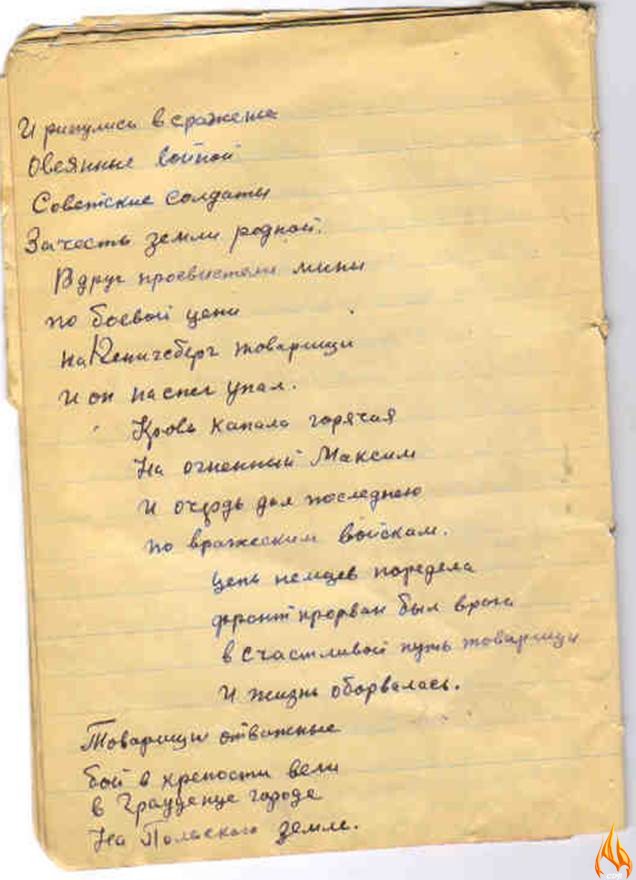 И ринулись в сражение
Овеянные войной
Советские солдаты
За честь земли родной.
Вдруг просвистели мины
по боевой цепи
на Кенигсберг товарищи
И он на снег упал.
Кровь капала горячая
На огненный Максим
И очередь дал последнюю
по вражеским войскам.
Цепь немцев поредела
фронт прорван был врага
в счастливой путь товарищи
И жизнь оборвалась.
Товарищи отважные
бой в крепости вели
в Грауденце городе
На Польского земле.